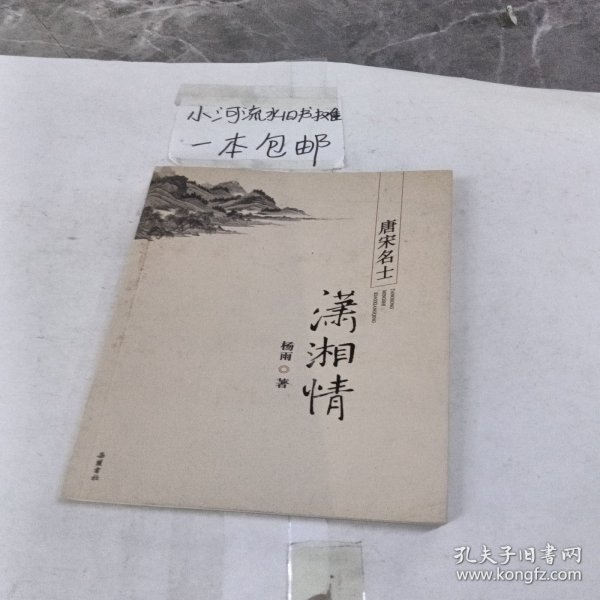 小河流水旧书摊
一本包邮
唐宋名士
TANGSONG
MINGSHI
XIAOXIANGQING
潇湘情
杨雨◎著
岳麓书社
孔夫子旧书网
www.kongfz.com